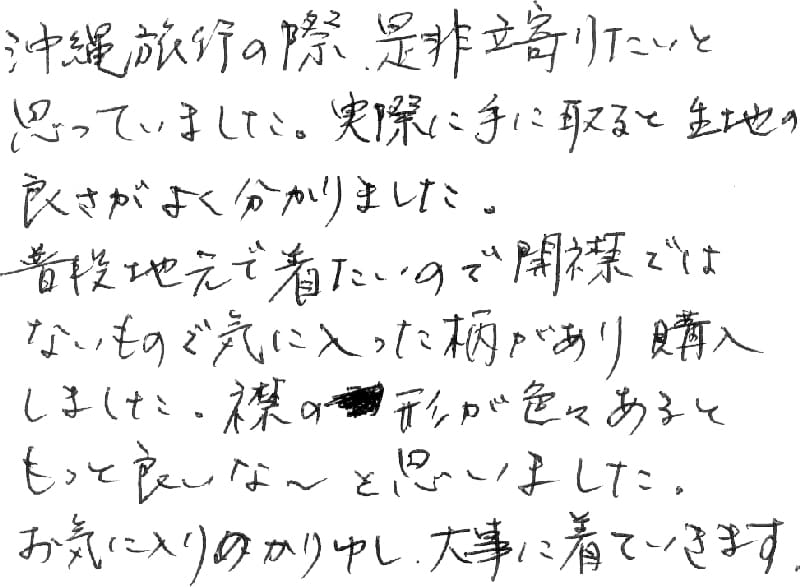 沖縄旅行の際、是非立寄りたいと
思っていました。実際に手に取ると生地の
良さがよく分かりました。
普段地元で着たいので開襟では
ないもので気に入った柄があり購入
しました。襟の形が色々あると
もっと良いな〜と思いました。
お気に入りのかりゆし、大事に着ていきます。